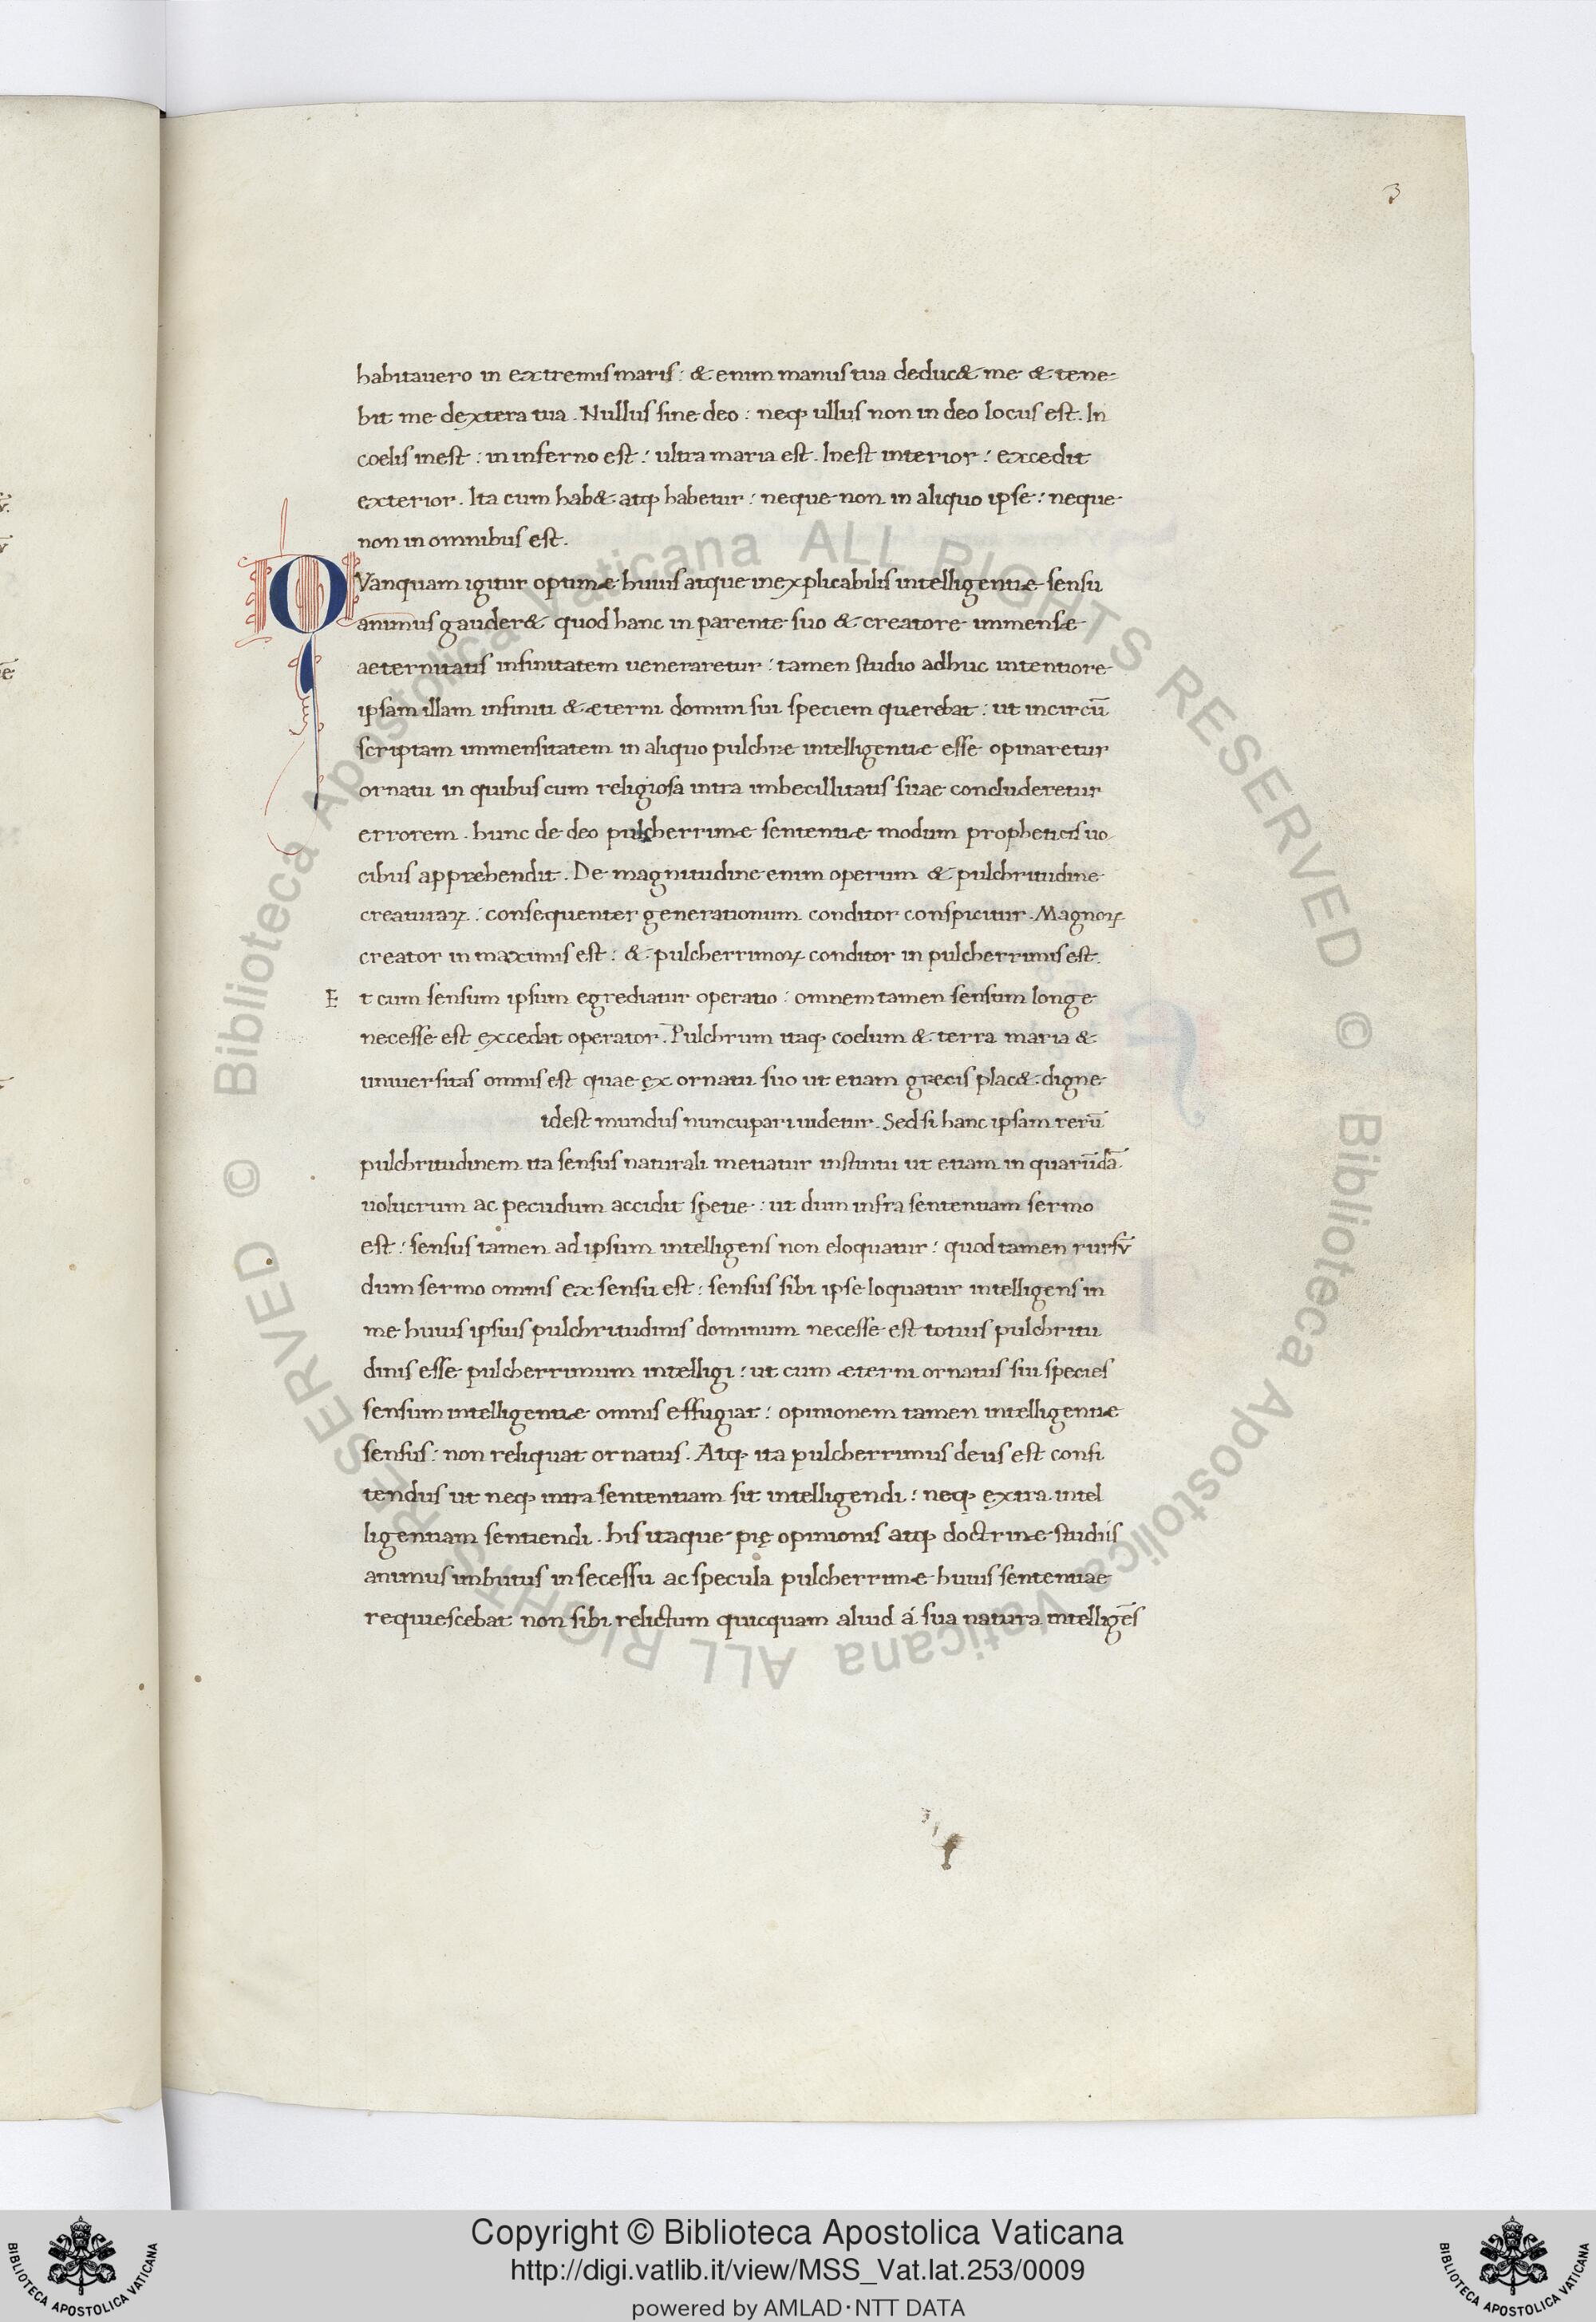 3
habitauero in extremis maris: & enim manus tua deduc& me & tene-
bit me dextera tua. Nullus sine deo: neqꝫ ullus non in deo locus est. In
coelis inest: in inferno est: ultra maria est. Inest interior: excedit
exterior. Ita cum hab& atqꝫ habetur: neque non in aliquo ipse: neque
non in omnibus est.
QVanquam igitur optimæ huius atque inexplicabilis intelligentiæ sensu
animus gauder& quod hanc in parente suo & creatore immensæ
aeternitatis infinitatem ueneraretur: tamen studio adhuc intentiore
ipsam illam infiniti & æterni domini sui speciem querebat: ut incircū
scriptam immensitatem in aliquo pulchræ intelligentiæ esse opinaretur
ornatu in quibus cum religiosa intra imbecillitatis suae concluderetur
errorem. hunc de deo pulcherrimæ sententiæ modum propheticis uo
cibus appræhendit. De magnitudine enim operum & pulchritudine
creaturaꝝ: consequenter generationum conditor conspicitur. Magnoꝝ
creator in maximis est: & pulcherrimoꝝ conditor in pulcherrimis est.
E t cum sensum ipsum egrediatur operatio: omnem tamen sensum longe
necesse est excedat operator. Pulchrum itaqꝫ coelum & terra maria &
uniuersitas omnis est quae ex ornatu suo ut etiam græcis plac& digne
idest mundus nuncupari uidetur. Sed si hanc ipsam rerū
pulchritudinem ita sensus naturali metiatur instintu ut etiam in quarūdā
uolucrum ac pecudum accidit spetie: ut dum infra sententiam sermo
est: sensus tamen ad ipsum intelligens non eloquatur: quod tamen rursv̄
dum sermo omnis ex sensu est: sensus sibi ipse loquatur intelligens in
me huius ipsius pulchritudinis dominum necesse est totius pulchritu
dinis esse pulcherrimum intelligi: ut cum æterni ornatus sui species
sensum intelligentiæ omnis effugiat: opinionem tamen intelligentiæ
sensus: non reliquat ornatus. Atqꝫ ita pulcherrimus deus est confi
tendus ut neqꝫ intra sententiam sit intelligendi: neqꝫ extra intel
ligentiam sentiendi. his itaque pię opinionis atqꝫ doctrinæ studiis
animus imbutus in secessu ac specula pulcherrimæ huius sententiae
requiescebat non sibi relictum quicquam aliud á sua natura intelligēs
© Biblioteca Apostolica Vaticana ALL RIGHTS RESERVED
© Biblioteca Apostolica Vaticana ALL RIGHTS RESERVED
Copyright © Biblioteca Apostolica Vaticana
http://digi.vatlib.it/view/MSS_Vat.lat.253/0009
powered by AMLAD·NTT DATA
BIBLIOTECA APOSTOLICA VATICANA
BIBLIOTECA APOSTOLICA VATICANA